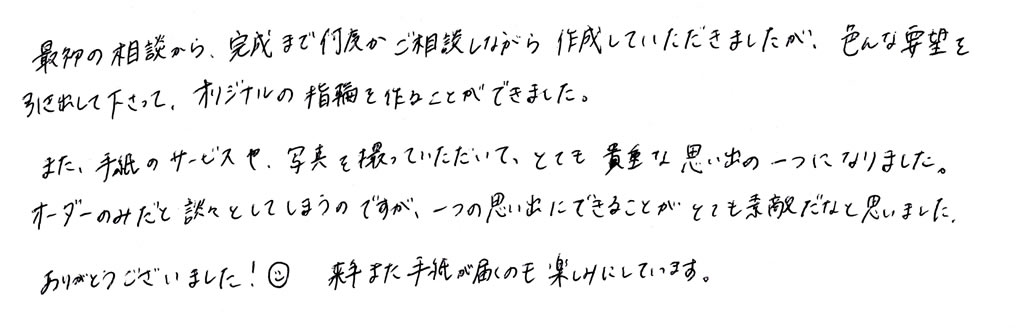 最初の相談から、完成まで何度かご相談しながら作成していただきましたが、色んな要望を
引き出して下さって、オリジナルの指輪を作ることができました。
また、手紙のサービスや、写真を撮っていただいて、とても貴重な思い出の一つになりました。
オーダーのみだと談々としてしまうのですが、一つの思い出にできることがとても素敵だなと思いました。
ありがとうございました!☺ 来年また手紙が届くのも楽しみにしています。